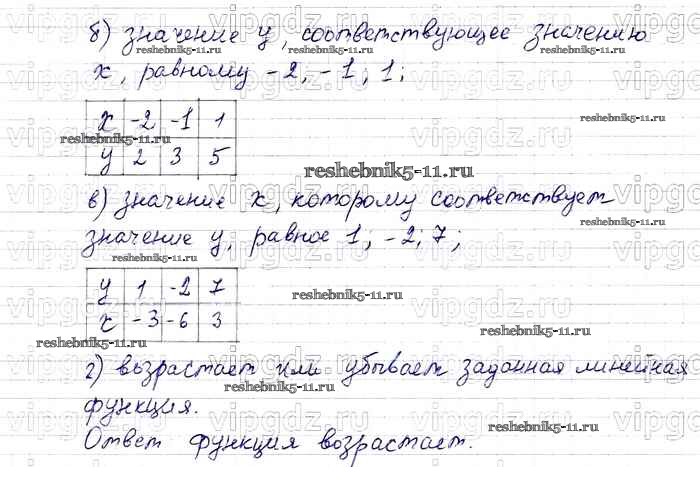 б) значение у, соответствующее значению
х, равному -2, -1; 1;
х -2 -1 1
у 2 3 5
в) значение х, которому соответствует
значение у, равное 1; -2; 7;
у 1 -2 7
х -3 -6 3
г) возрастает или убывает заданная линейная
функция.
Ответ функция возрастает.
reshebnik5-11.ru
vipgdz.ru